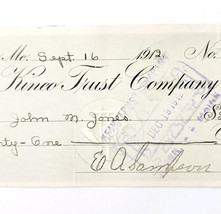 Me. Sept. 16 1912 No.
Kineo Trust Company
John M. Jones $
ty-One
E A Sampson